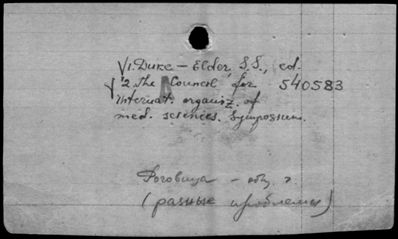 1. Duke – Elder S.S., ed.
2. the Council for 540583
internat. organiz. of
med. sciences. Symposium.
Роговица – общ. з.
(разные проблемы)